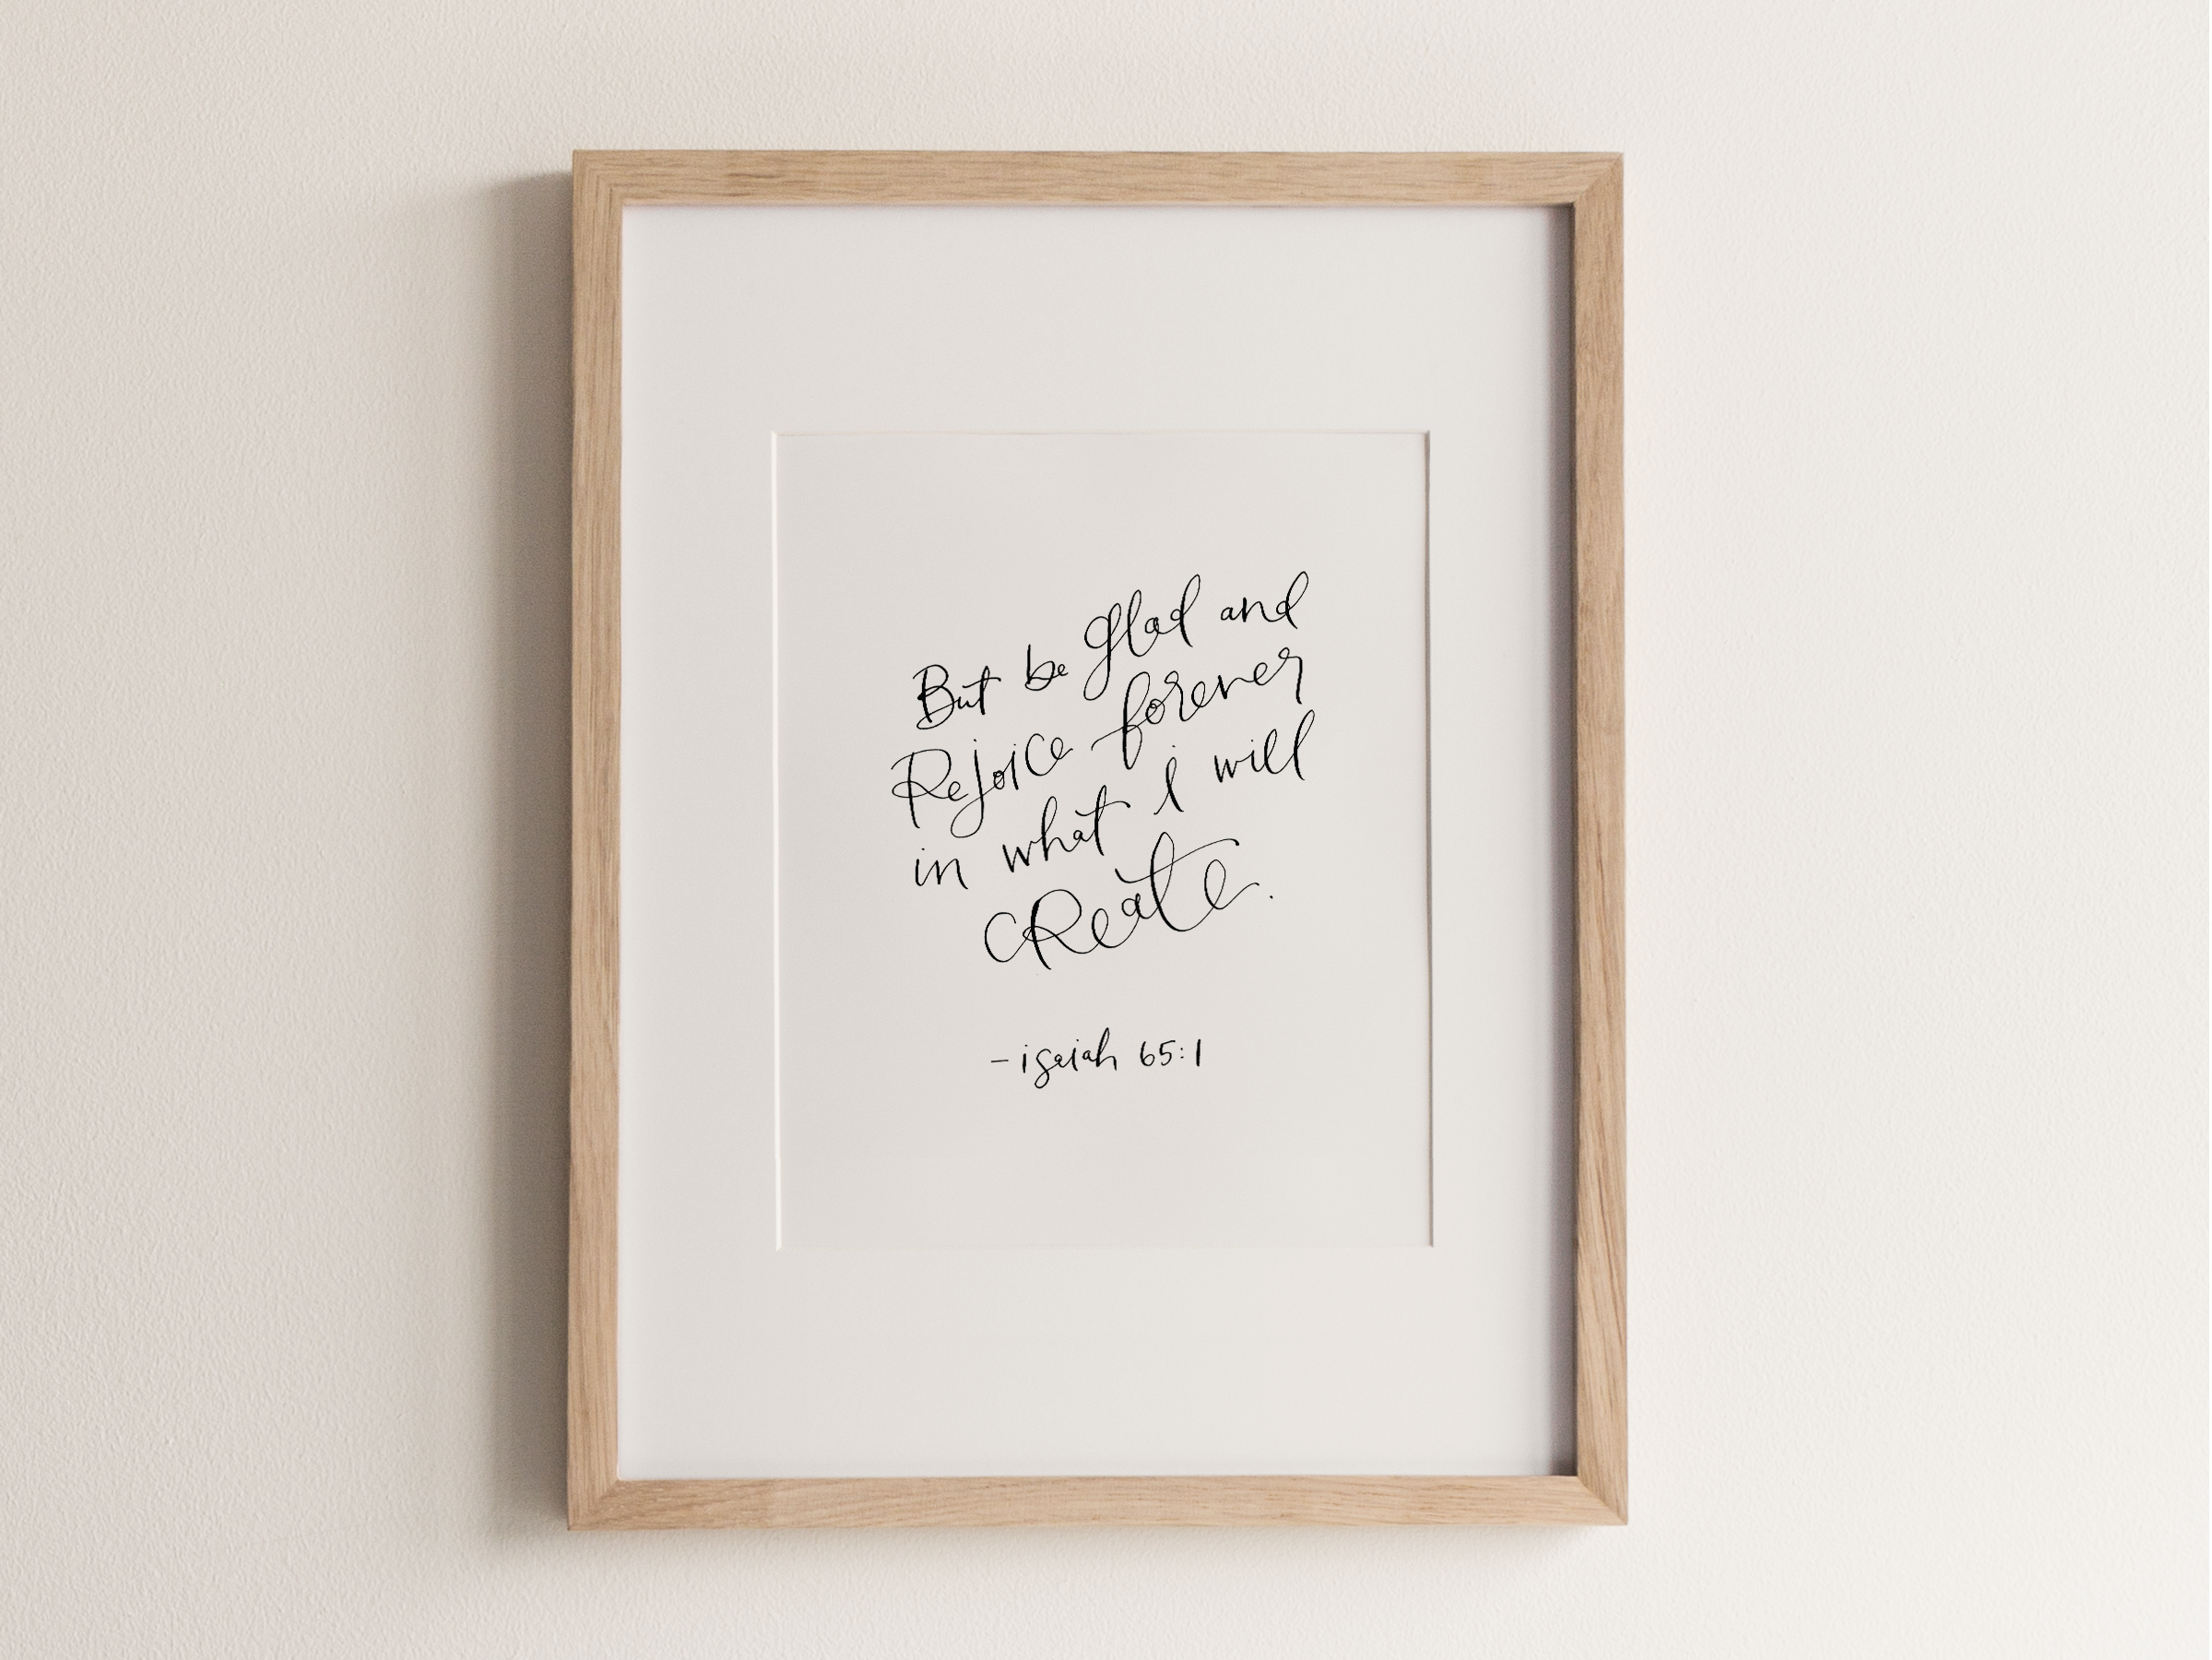 But be glad and
Rejoice forever
in what i will
cReate.
- isaiah 65:1